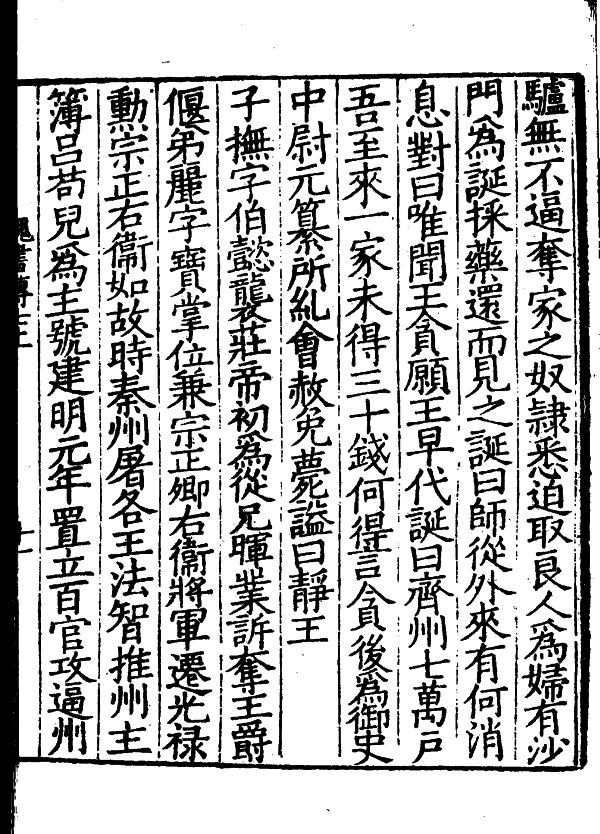 驢無不逼奪家之奴隷悉迫取良人爲婦有沙
門爲誕採藥還而見之誕曰師從外來有何消
息對曰唯聞王貪願王早代誕曰齊州七萬戸
吾至來一家未得三十錢何得言貪後爲御史
中尉元纂所糺會赦免薨謚曰靜王
子撫字伯懿襲莊帝初爲從兄暉業訴奪王爵
偃弟麗字寶掌位兼宗正卿右衞將軍遷光禄
勲宗正右衞如故時秦州屠各王法智推州主
簿吕苟兒爲主號建明元年置立百官攻逼州